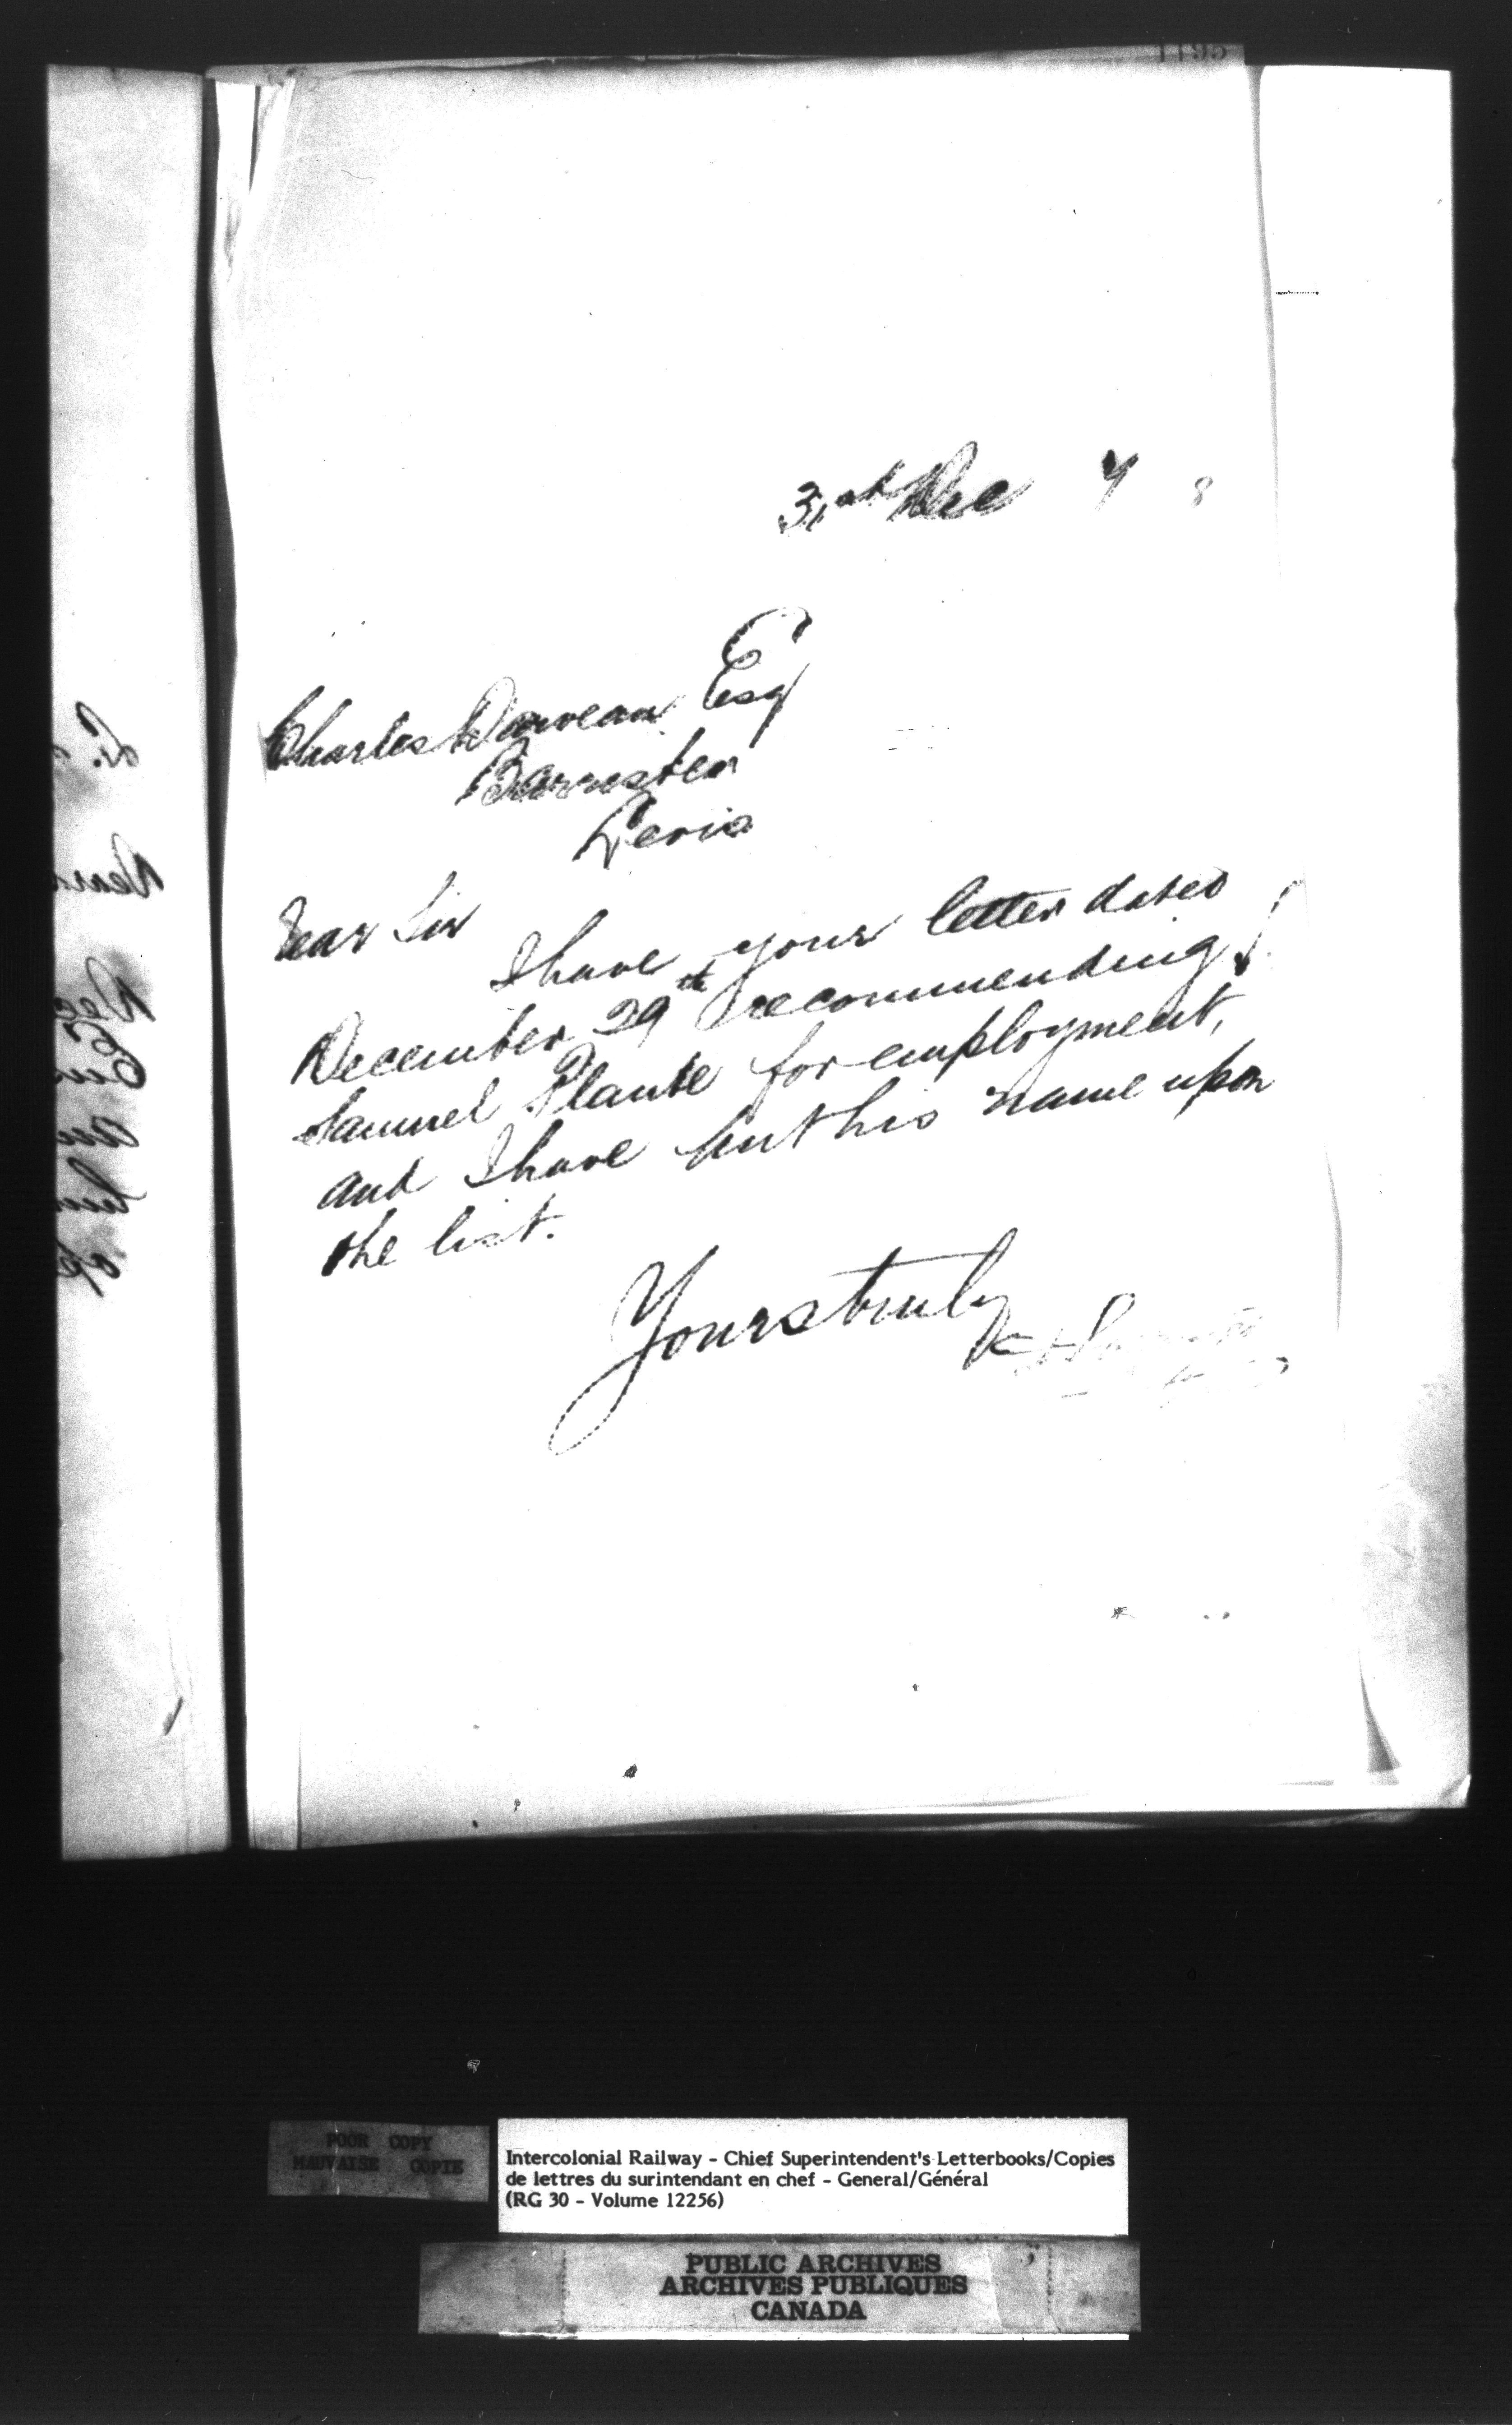 1195
31st Dec 7 8
Charles Darveau Esq
Barrister
Levis
Dear Sir
I have your letter dated
December 29th recommending
Samuel Plante for employment,
and I have put his name upon
the list.
Yours truly
POOR COPY
MAUVAISE COPIE
Intercolonial Railway - Chief Superintendent's Letterbooks/Copies
de lettres du surintendant en chef - General/Général
(RG 30 - Volume 12256)
PUBLIC ARCHIVES
ARCHIVES PUBLIQUES
CANADA